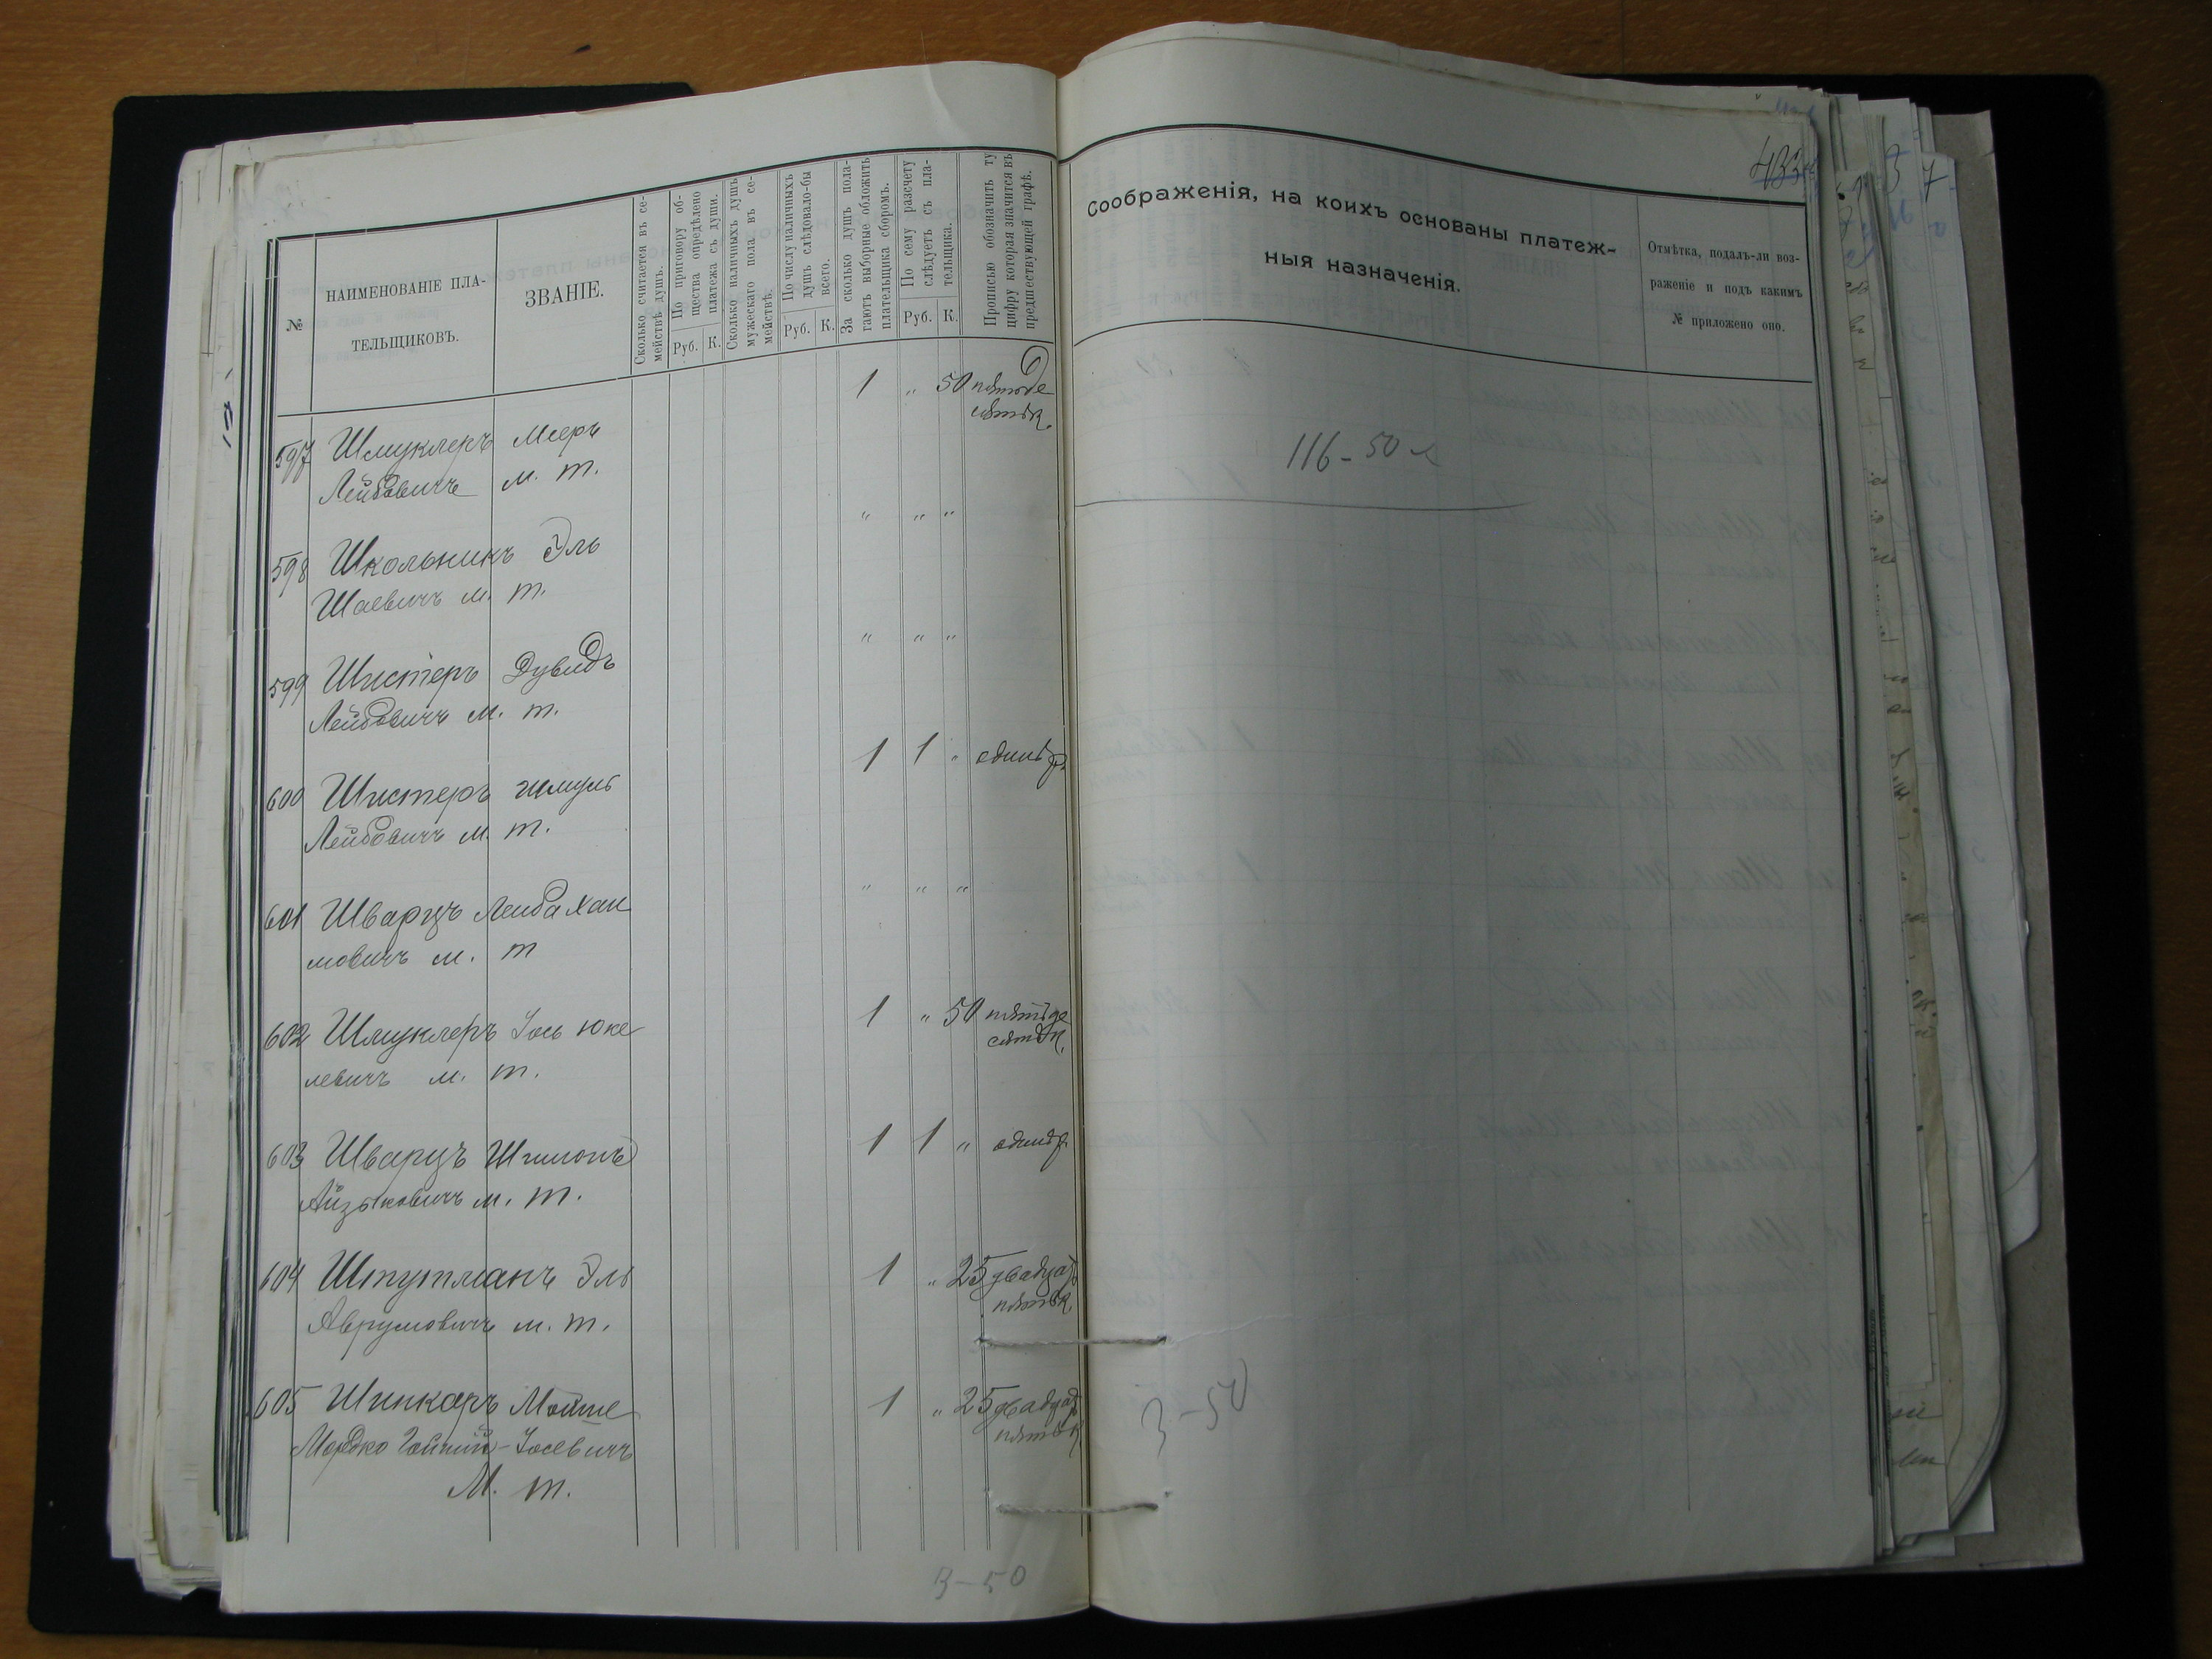 №
НАИМЕНОВАНІЕ ПЛА-
ТЕЛЬЩИКОВЪ.
ЗВАНІЕ.
Сколько считается въ се-
мействѣ душъ.
По приговору об-
щества опредѣлено
платежа съ души.
Руб. К.
Сколько наличныхъ душъ
мужескаго пола въ се-
мействѣ.
По числу наличныхъ
душъ слѣдовало-бы
всего.
Руб. К.
За сколько душъ пола-
гаютъ выборные обложить
плательщика сборомъ.
По сему разсчету
слѣдуетъ съ пла-
тельщика.
Руб. К.
Прописью обозначить ту
цифру которая значится въ
предшествующей графѣ.
597 Шмуклеръ Мееръ 1 „ 50 пятьде
Лейбовичъ м. т. сятьк.
598 Школьникъ Эль „ „ „
Шаевичъ м. т.
599 Шистеръ Дувидъ „ „ „
Лейбовичъ м. т.
600 Шистеръ Шмуль 1 1 „ одинъ р.
Лейбовичъ м. т.
601 Шварцъ Лейба Хаи „ „ „
мовичъ м. т
602 Шмуклеръ Іось Юке 1 „ 50 пятьде
левичъ м. т. сятьк.
603 Шварцъ Шимонъ 1 1 „ одинъ р.
Айзыковичъ м. т.
604 Штутманъ Эль 1 „ 25 двадцать
Аврумовичъ м. т. пятьк.
605 Шинкаръ Мойше 1 „ 25 двадцать
Мордко Іосевичъ пятьк
М. т.
3-50
433
Соображенія, на коихъ основаны платеж-
ныя назначенія.
Отмѣтка, подалъ-ли воз-
раженіе и подъ какимъ
№ приложено оно.
116-50
3-50